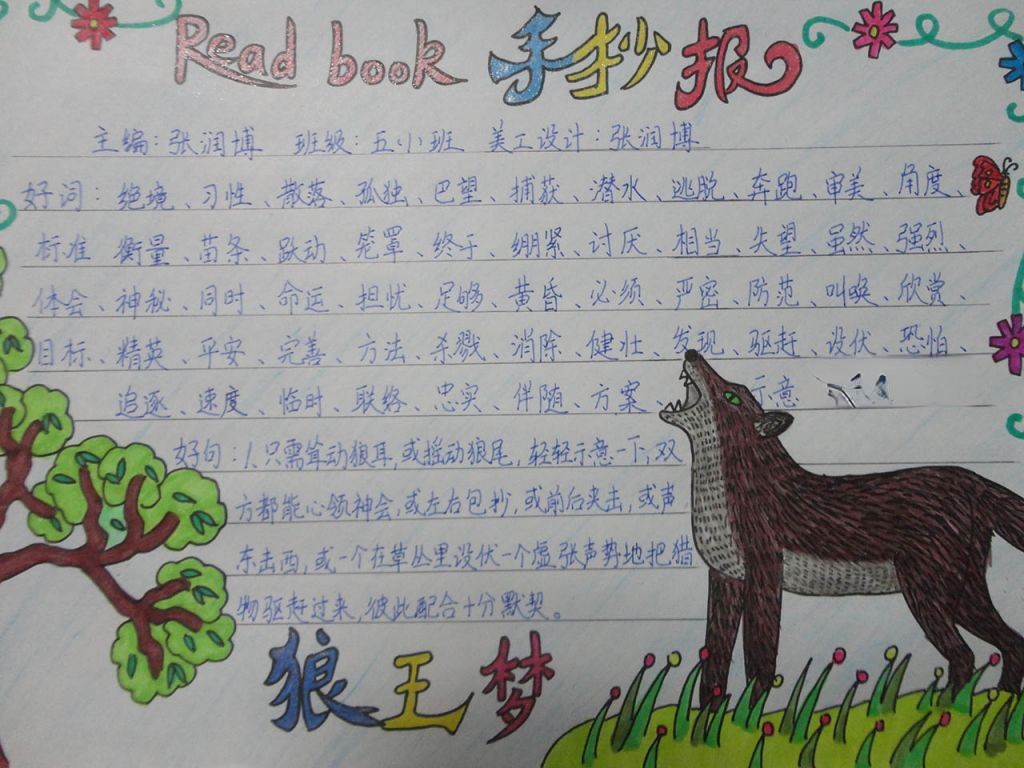 Read book 手抄报
主编：张润博 班级：五.小班 美工设计：张润博
好词：绝境、习性、散落、孤独、巴望、捕获、潜水、逃脱、奔跑、审美、角度、
标准 衡量、苗条、跃动、笼罩、终于、绷紧、讨厌、相当、失望、虽然、强烈、
体会、神秘、同时、命运、担忧、足够、黄昏、必须、严密、防范、叫唤、欣赏、
目标、精英、平安、完善、方法、杀戮、消除、健壮、发现、驱赶、设伏、恐怕、
追逐、速度、临时、联络、忠实、伴随、方案、示意
好句：1、只需耸动狼耳，或摇动狼尾，轻轻示意一下，双
方都能心领神会，或左右包抄，或前后夹击，或声
东击西，或一个在草丛里设伏一个虚张声势地把猎
物驱赶过来，彼此配合十分默契。
狼王梦